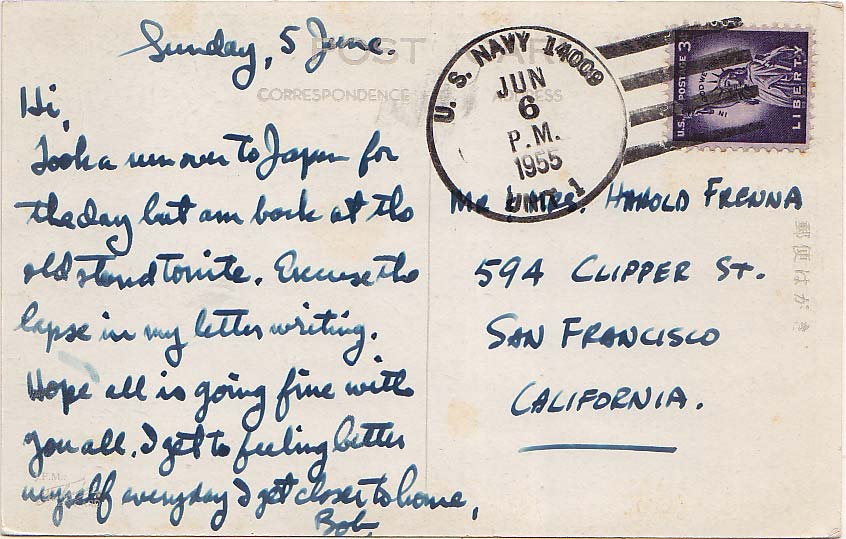 POST CARD
CORRESPONDENCE
ADDRESS
Sunday, 5 June.
Hi,
Took a run over to Japan for
the day but am back at the
old stand tonite. Excuse the
lapse in my letter writing.
Hope all is going fine with
you all. I get to feeling better
myself everyday I get closer to home,
Bob.
U. S. NAVY 14009
JUN
6
P.M.
1955
UNIT 1
U.S. POSTAGE 3¢
LIBERTY
IN GOD WE
Mr & Mrs. HAROLD FRENNA
594 CLIPPER ST.
SAN FRANCISCO
CALIFORNIA.
郵便はがき